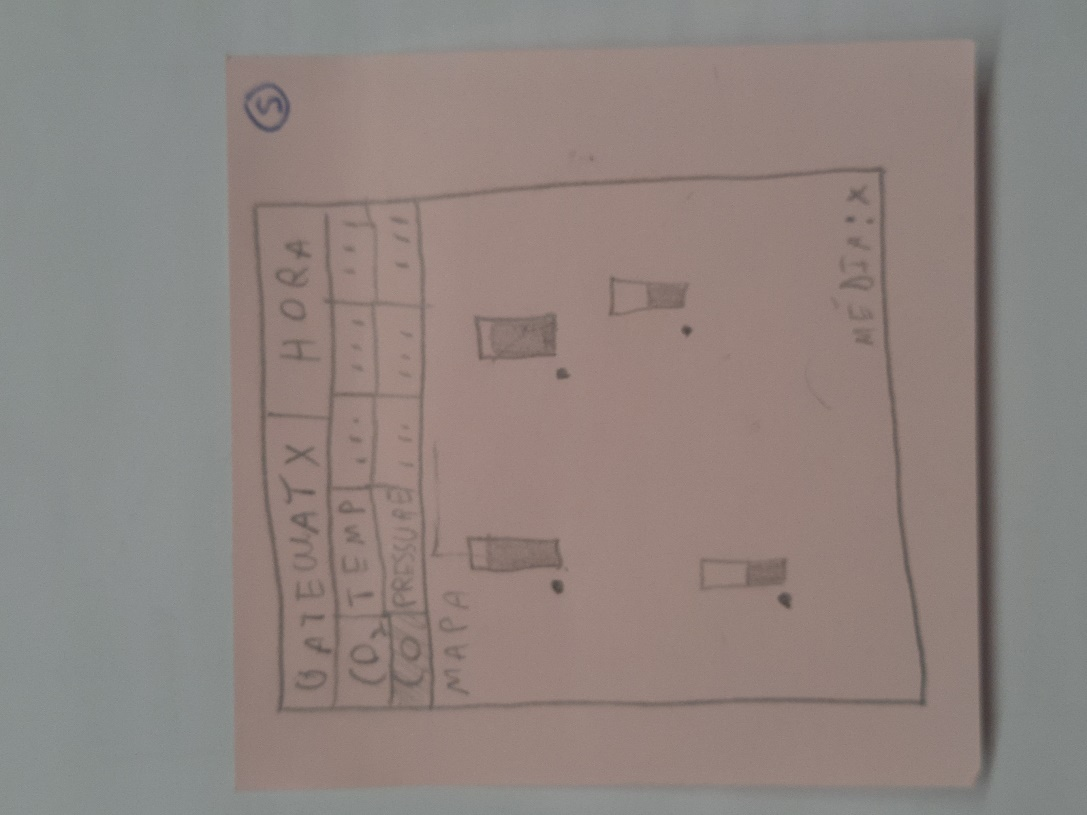 5
GATEWAY X | HORA
CO2 TEMP ... ... ...
CO PRESSURE ... ... ...
MAPA
MÉDIA: X